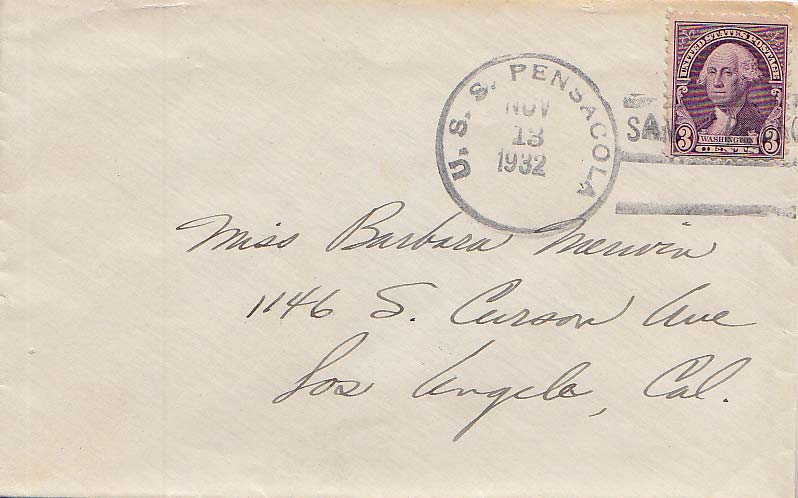 U. S. S. PENSACOLA
NOV
13
1932
UNITED STATES POSTAGE
3 WASHINGTON 3
CENTS
Miss Barbara Merwin
1146 S. Curson Ave
Los Angeles, Cal.